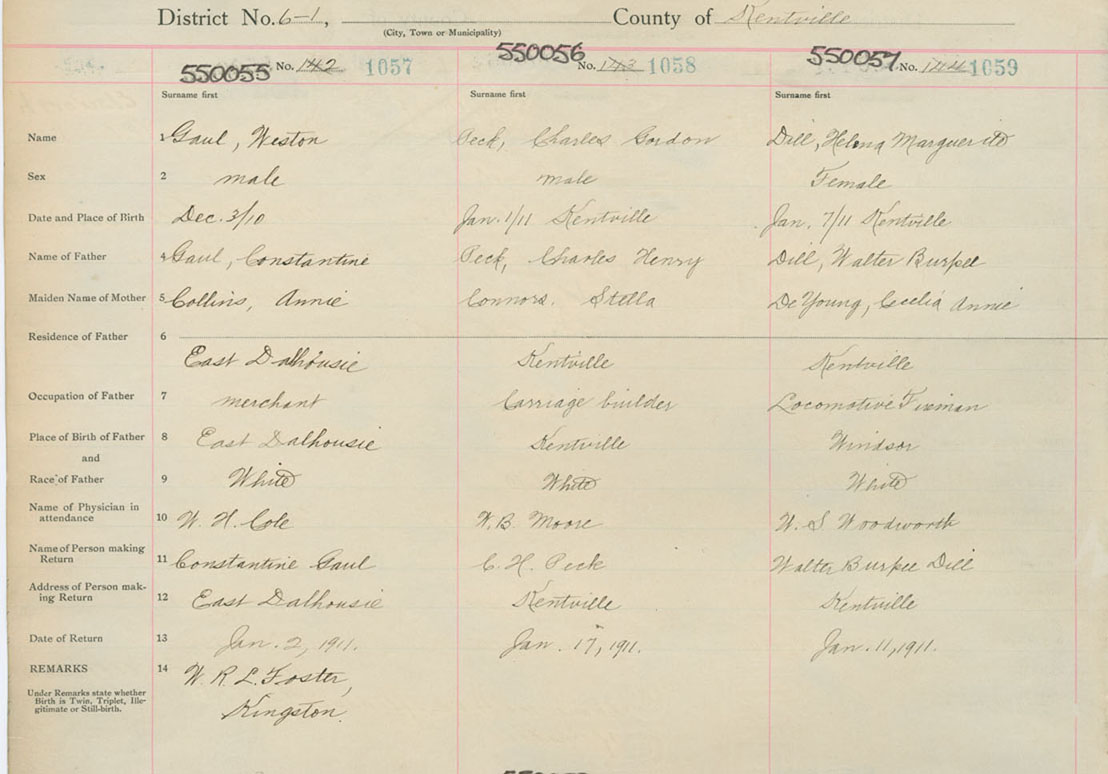 District No. 6-1, County of Kentville
(City, Town or Municipality)
550055 No. 142 1057 550056 No. 143 1058 550057 No. 144 1059
Surname first Surname first Surname first
Name 1 Gaul, Weston Peck, Charles Gordon Dill, Helena Marguerite
Sex 2 male male Female
Date and Place of Birth Dec. 3/10 Jan. 1/11 Kentville Jan. 7/11 Kentville
Name of Father 4 Gaul, Constantine Peck, Charles Henry Dill, Walter Burpee
Maiden Name of Mother 5 Collins, Annie Connors. Stella De Young, Cecelia Annie
Residence of Father 6
East Dalhousie Kentville Kentville
Occupation of Father 7 merchant Carriage builder Locomotive Fireman
Place of Birth of Father 8 East Dalhousie Kentville Windsor
and
Race of Father 9 White White White
Name of Physician in
attendance 10 W. H. Cole W. B. Moore W. S Woodworth
Name of Person making
Return 11 Constantine Gaul C. H. Peck Walter Burpee Dill
Address of Person mak-
ing Return 12 East Dalhousie Kentville Kentville
Date of Return 13 Jan. 2, 1911. Jan. 17, 1911. Jan. 11, 1911.
REMARKS 14 W. R. L. Foster,
Under Remarks state whether
Birth is Twin, Triplet, Ille-
gitimate or Still-birth.
Kingston.